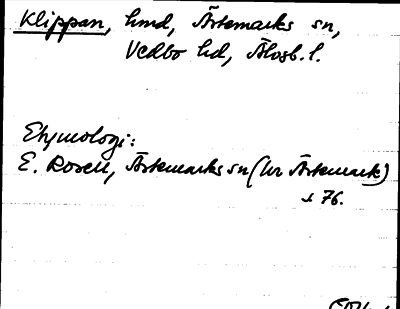 Klippan, hmd, Ärtemarks sn,
Vedbo hd, Älvsb. l.
Etymologi:
E. Rosell, Ärtemarks sn (hr Ärtemark)
s 76.